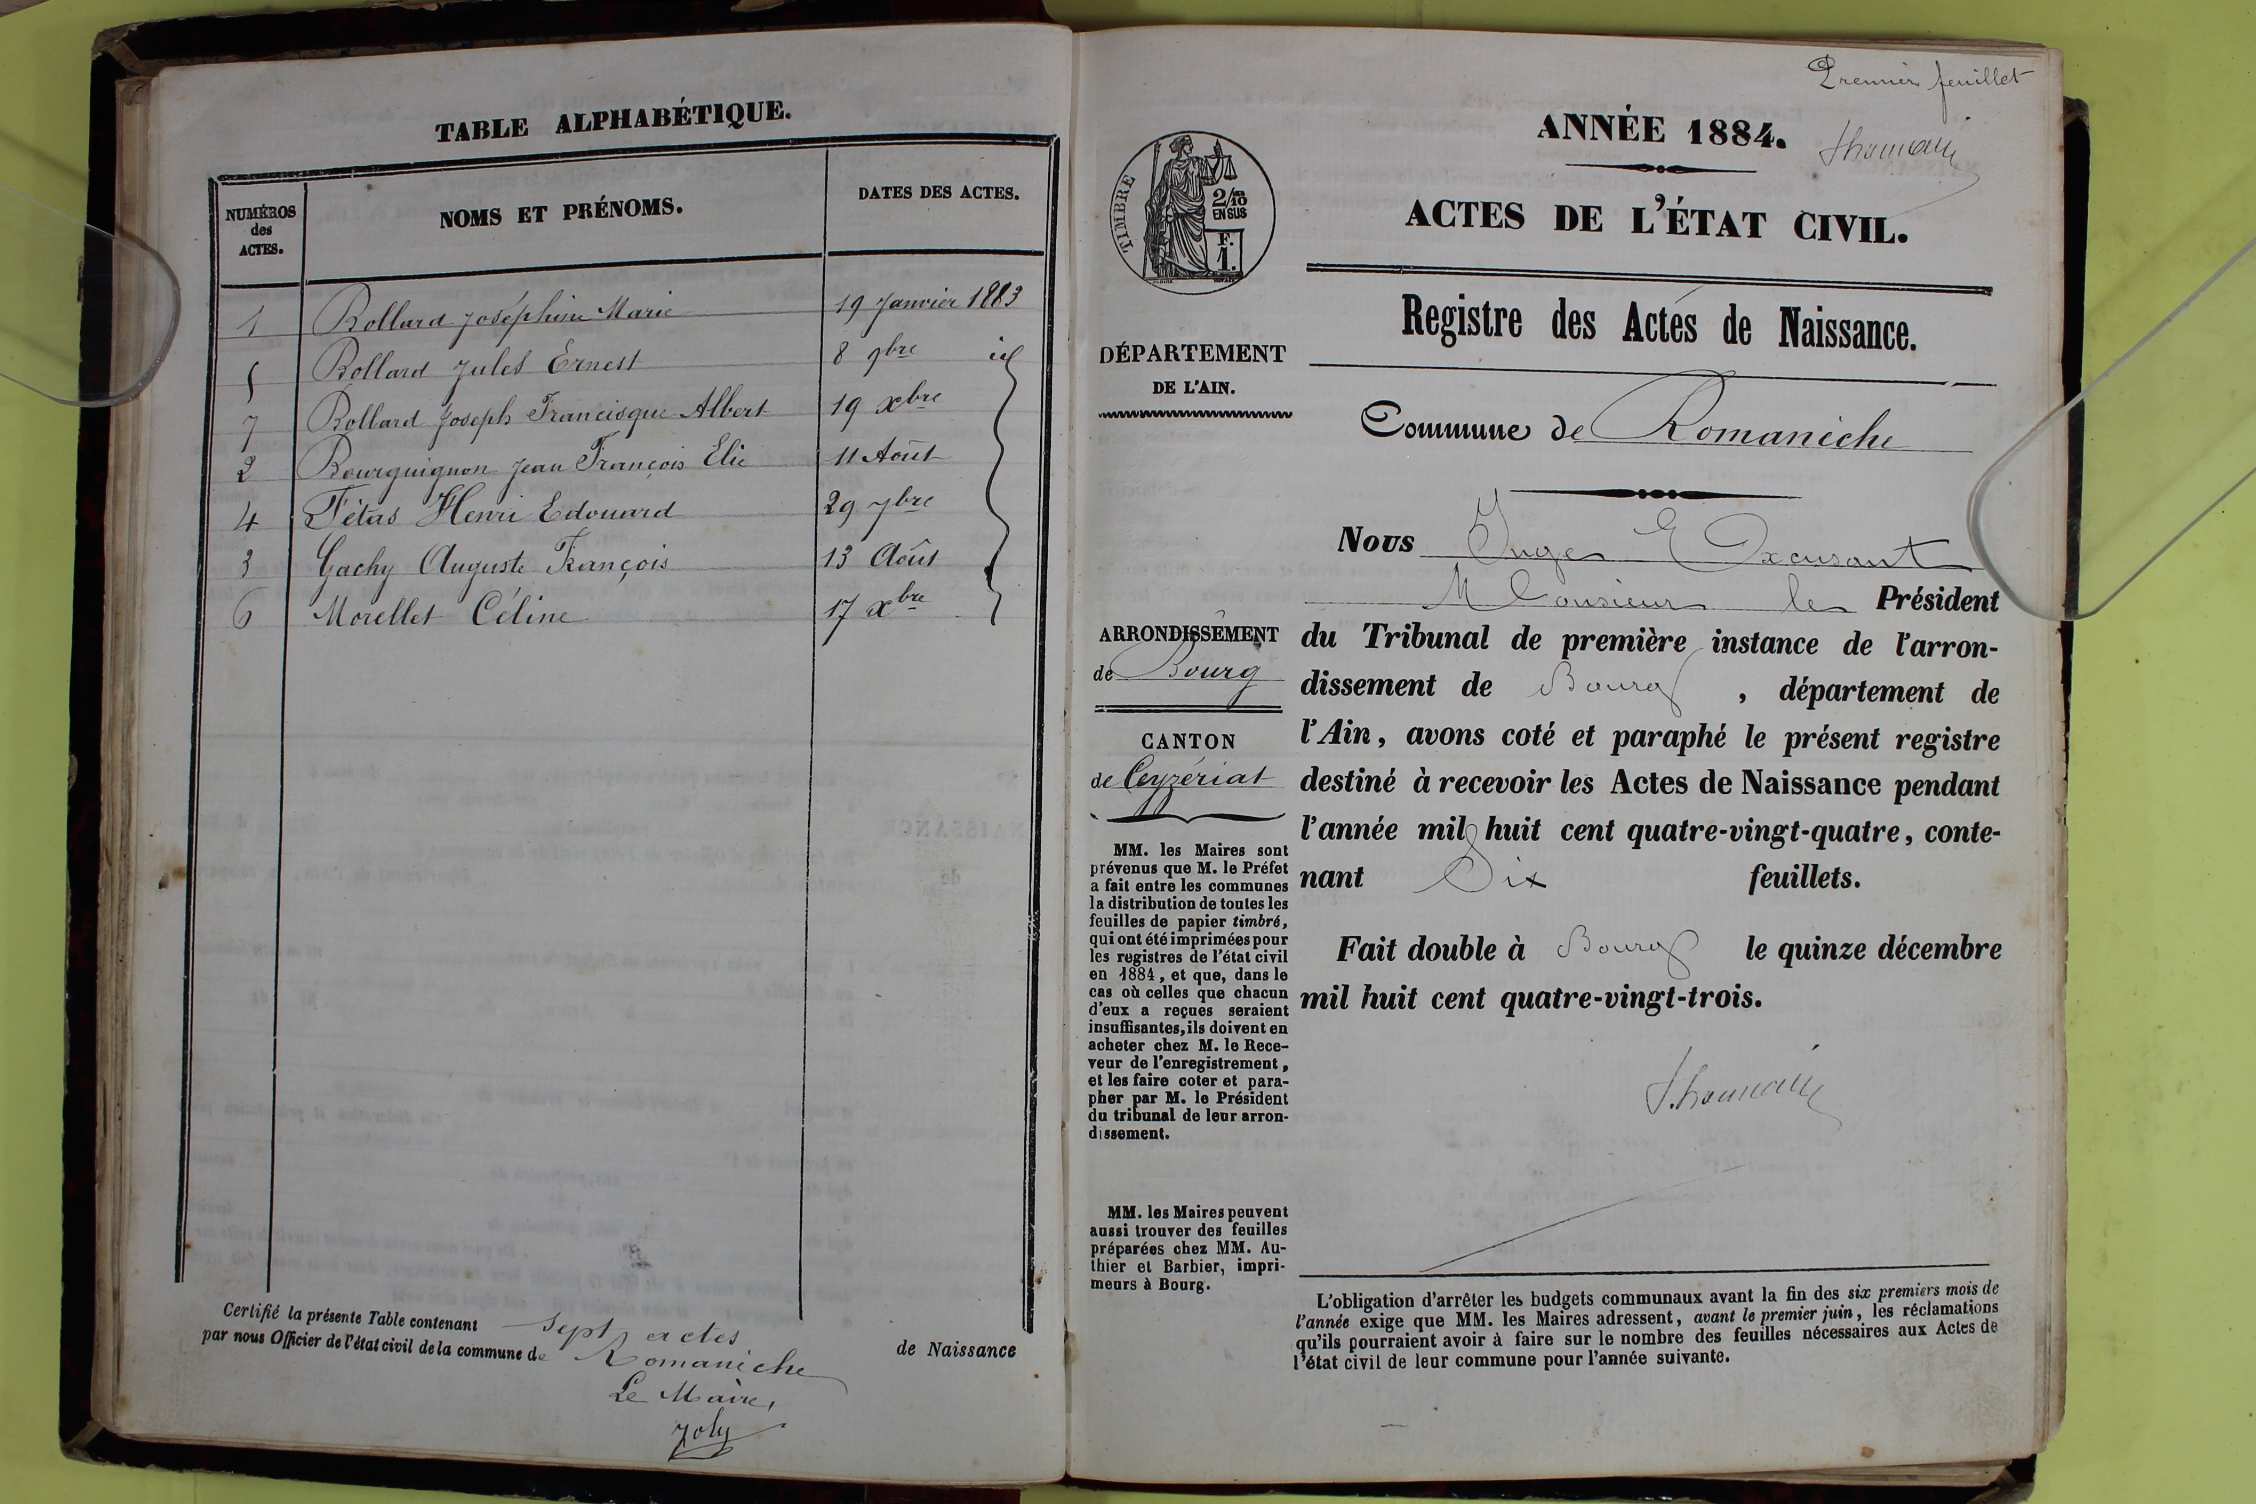 TABLE ALPHABÉTIQUE.
NUMÉROS des ACTES.
NOMS ET PRÉNOMS.
DATES DES ACTES.
1 Bollard Joséphine Marie 19 Janvier 1883
5 Bollard Jules Ernest 8 9bre id
7 Bollard Joseph Francisque Albert 19 xbre
2 Bourguignon Jean François Elie 11 Août
4 Fétas Henri Edouard 29 7bre
3 Gachy Auguste François 13 Août
6 Morellet Céline 17 xbre
Certifié la présente Table contenant sept actes de Naissance
par nous Officier de l'état civil de la commune de Romanèche
Le Maire,
Joly
Premier feuillet
ANNÉE 1884.
ACTES DE L'ÉTAT CIVIL.
Registre des Actes de Naissance.
Commune de Romanèche
TIMBRE
2/10
EN SUS
F.
1.
DÉPARTEMENT
DE L'AIN.
ARRONDISSEMENT
de Bourg
CANTON
de Ceyzériat
MM. les Maires sont
prévenus que M. le Préfet
a fait entre les communes
la distribution de toutes les
feuilles de papier timbré,
qui ont été imprimées pour
les registres de l'état civil
en 1884, et que, dans le
cas où celles que chacun
d'eux a reçues seraient
insuffisantes, ils doivent en
acheter chez M. le Rece-
veur de l'enregistrement,
et les faire coter et para-
pher par M. le Président
du tribunal de leur arron-
dissement.
MM. les Maires peuvent
aussi trouver des feuilles
préparées chez MM. Au-
thier et Barbier, impri-
meurs à Bourg.
Nous Juge Excusant
Monsieur le Président
du Tribunal de première instance de l'arron-
dissement de Bourg, département de
l'Ain, avons coté et paraphé le présent registre
destiné à recevoir les Actes de Naissance pendant
l'année mil huit cent quatre-vingt-quatre, conte-
nant Six feuillets.
Fait double à Bourg le quinze décembre
mil huit cent quatre-vingt-trois.
L'obligation d'arrêter les budgets communaux avant la fin des six premiers mois de
l'année exige que MM. les Maires adressent, avant le premier juin, les réclamations
qu'ils pourraient avoir à faire sur le nombre des feuilles nécessaires aux Actes de
l'état civil de leur commune pour l'année suivante.